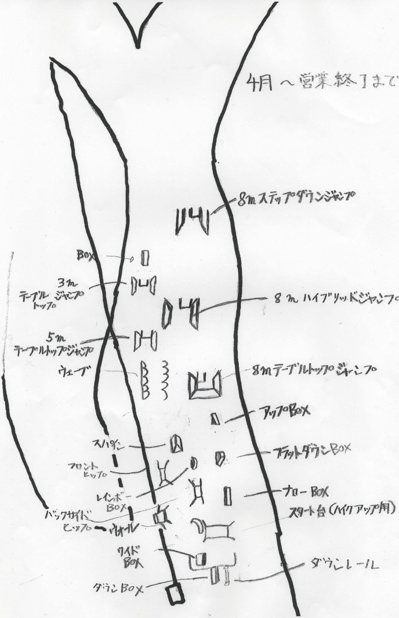 4月～営業終了まで
8mステップダウンジャンプ
BOX
3m
テーブルジャンプ
トップ
8mハイブリッドジャンプ
5m
テーブルトップジャンプ
ウェーブ
8mテーブルトップジャンプ
アップBOX
スパイン
フラットダウンBOX
フロント
ヒップ
レインボー
BOX
ナローBOX
バックサイド
ヒップ
ウォール
スタート台(ハイクアップ用)
ワイド
BOX
ダウンレール
ダウンBOX